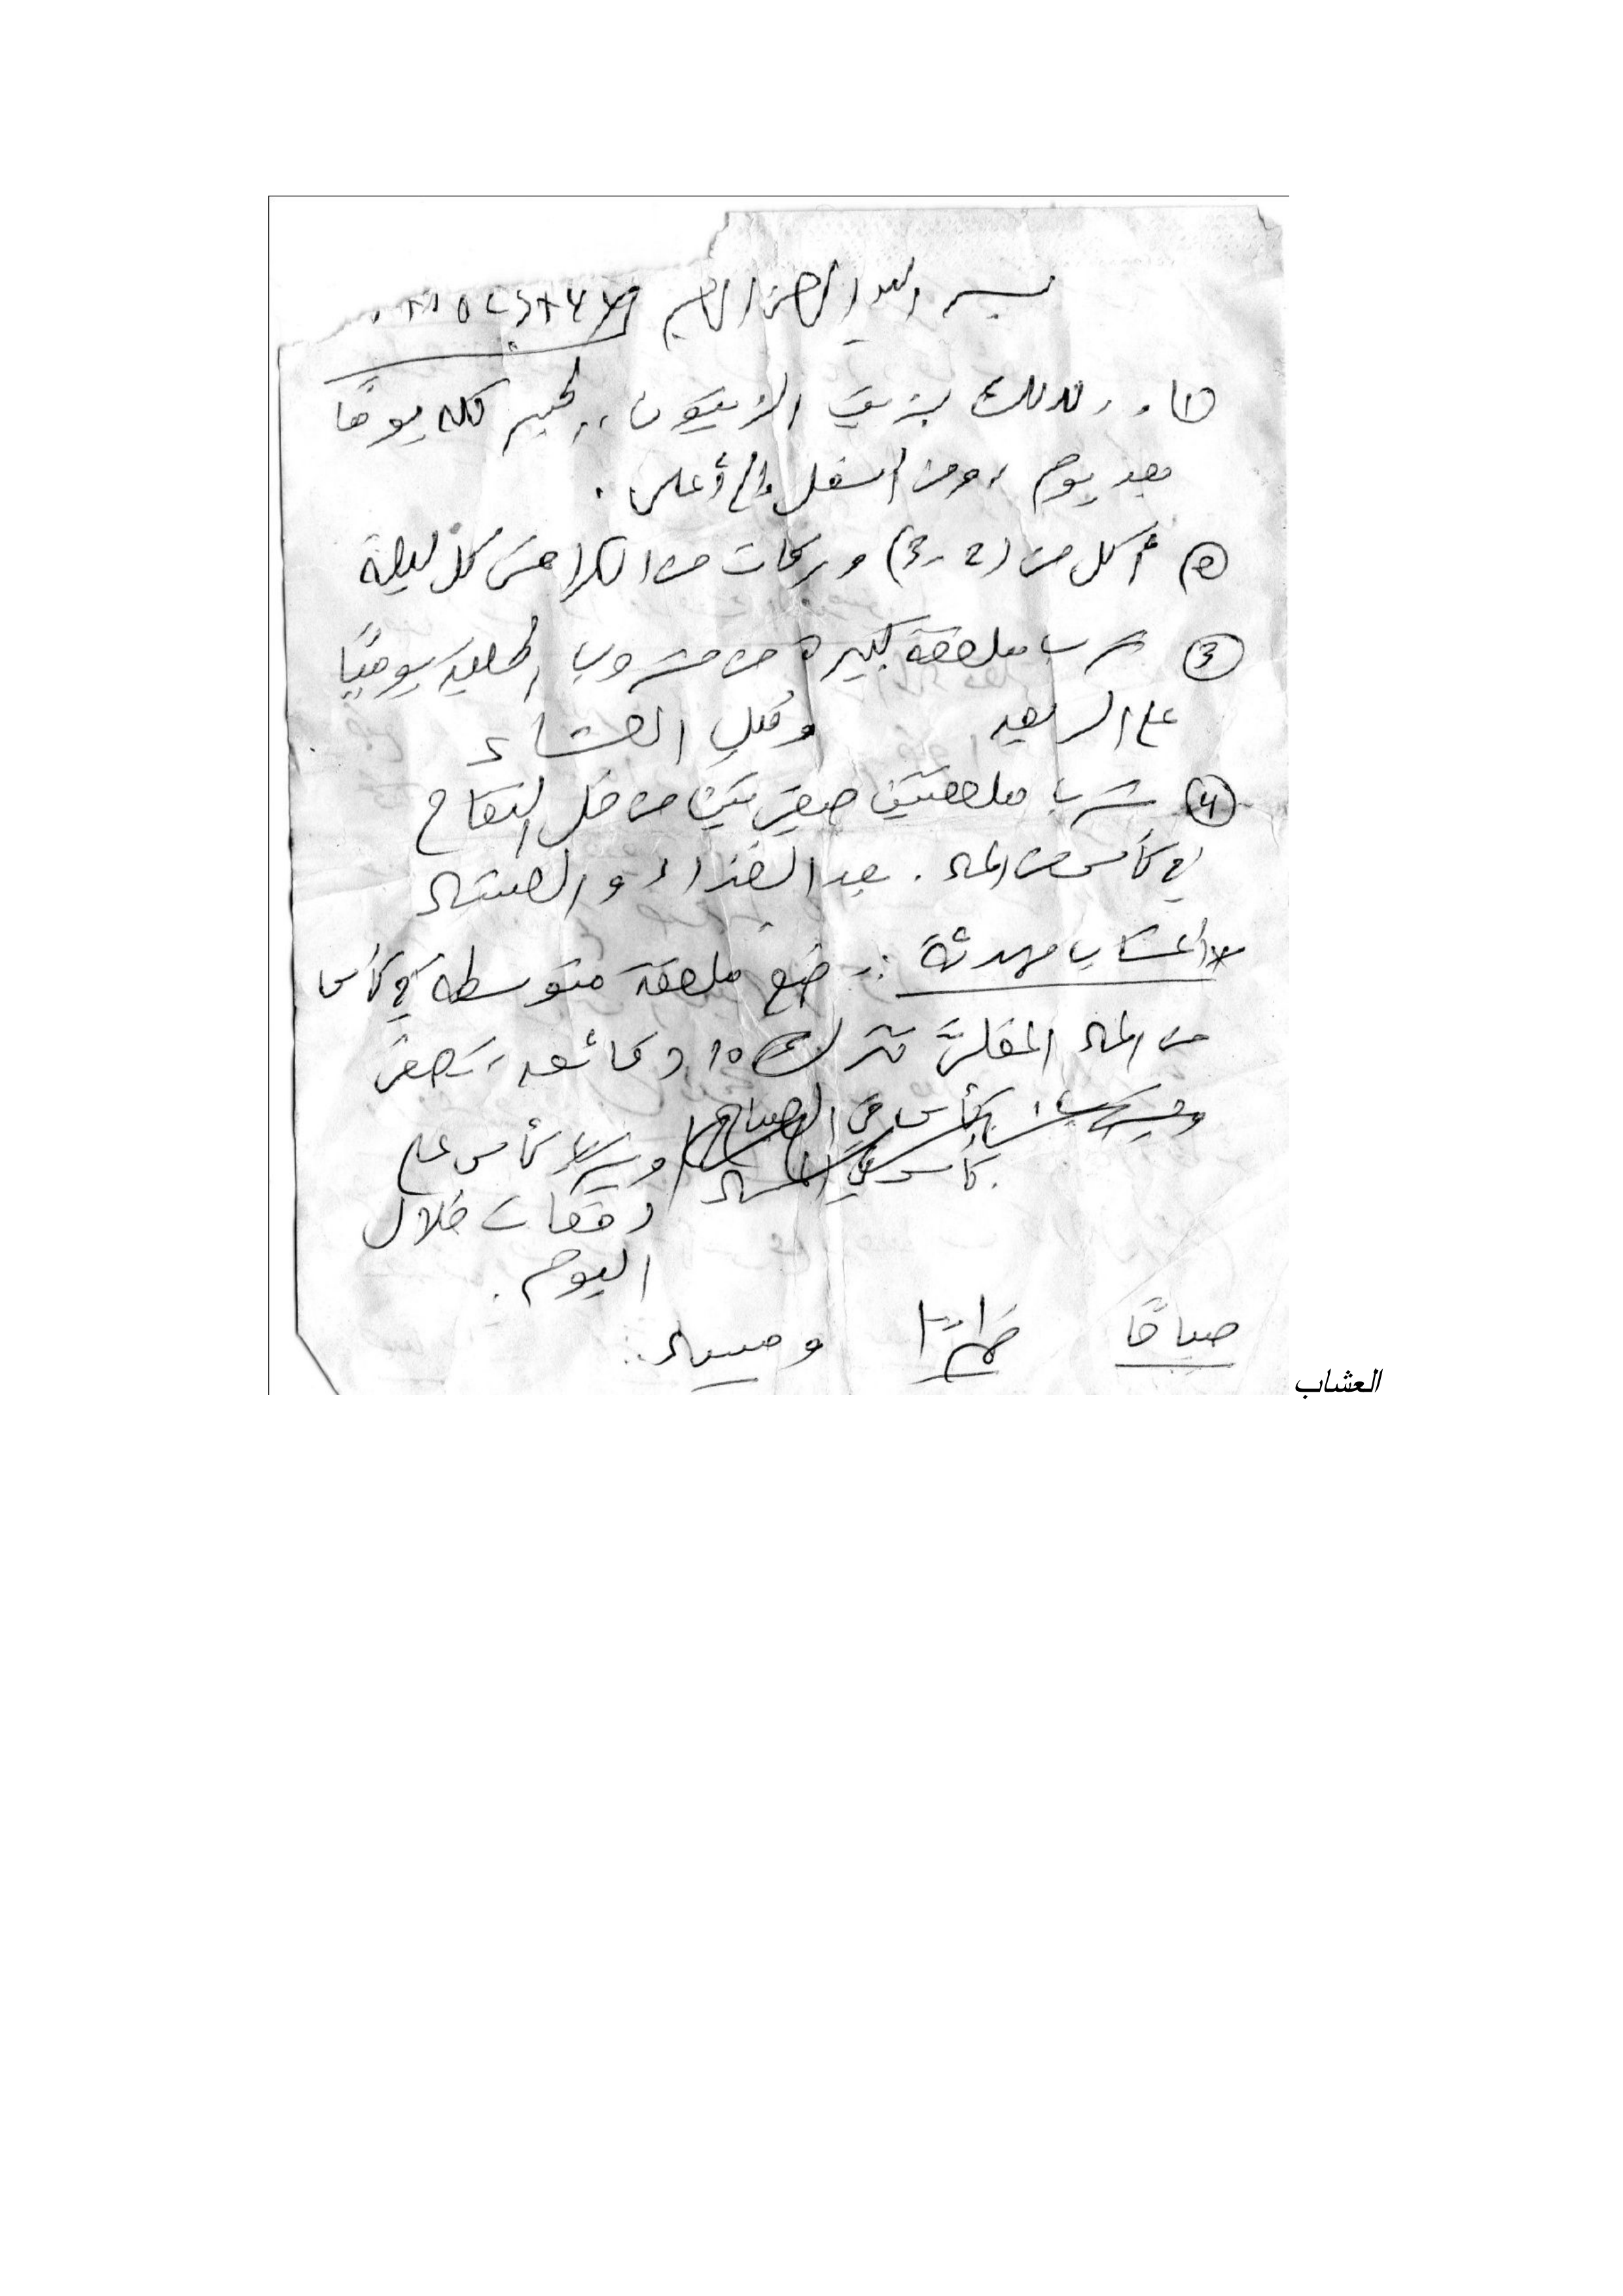 بسم الله الرحمن الرحيم
① .. تدليك بزيت الزيتون .. للجسم كله يومًا
بعد يوم ، ومن أسفل إلى أعلى .
② أكل من (2-3) ورقات من الكرفس كل ليلة
③ شرب ملعقة كبيرة من مشروب الحلبة يوميًا
على الريق وقبل العشاء
④ شرب ملعقتين صغيرتين من خل التفاح
في كأس من الماء . بعد الغذاء والعشاء
* أعشاب مهدئة :- ضع ملعقة متوسطة في كأس
من الماء المغلي تترك 10 دقائق ، تصفى
كأس في الصباح
كأس في المساء ويشرب كأس على
دفعات خلال
اليوم .
صباحًا ظهرًا ومساء .
العشاب